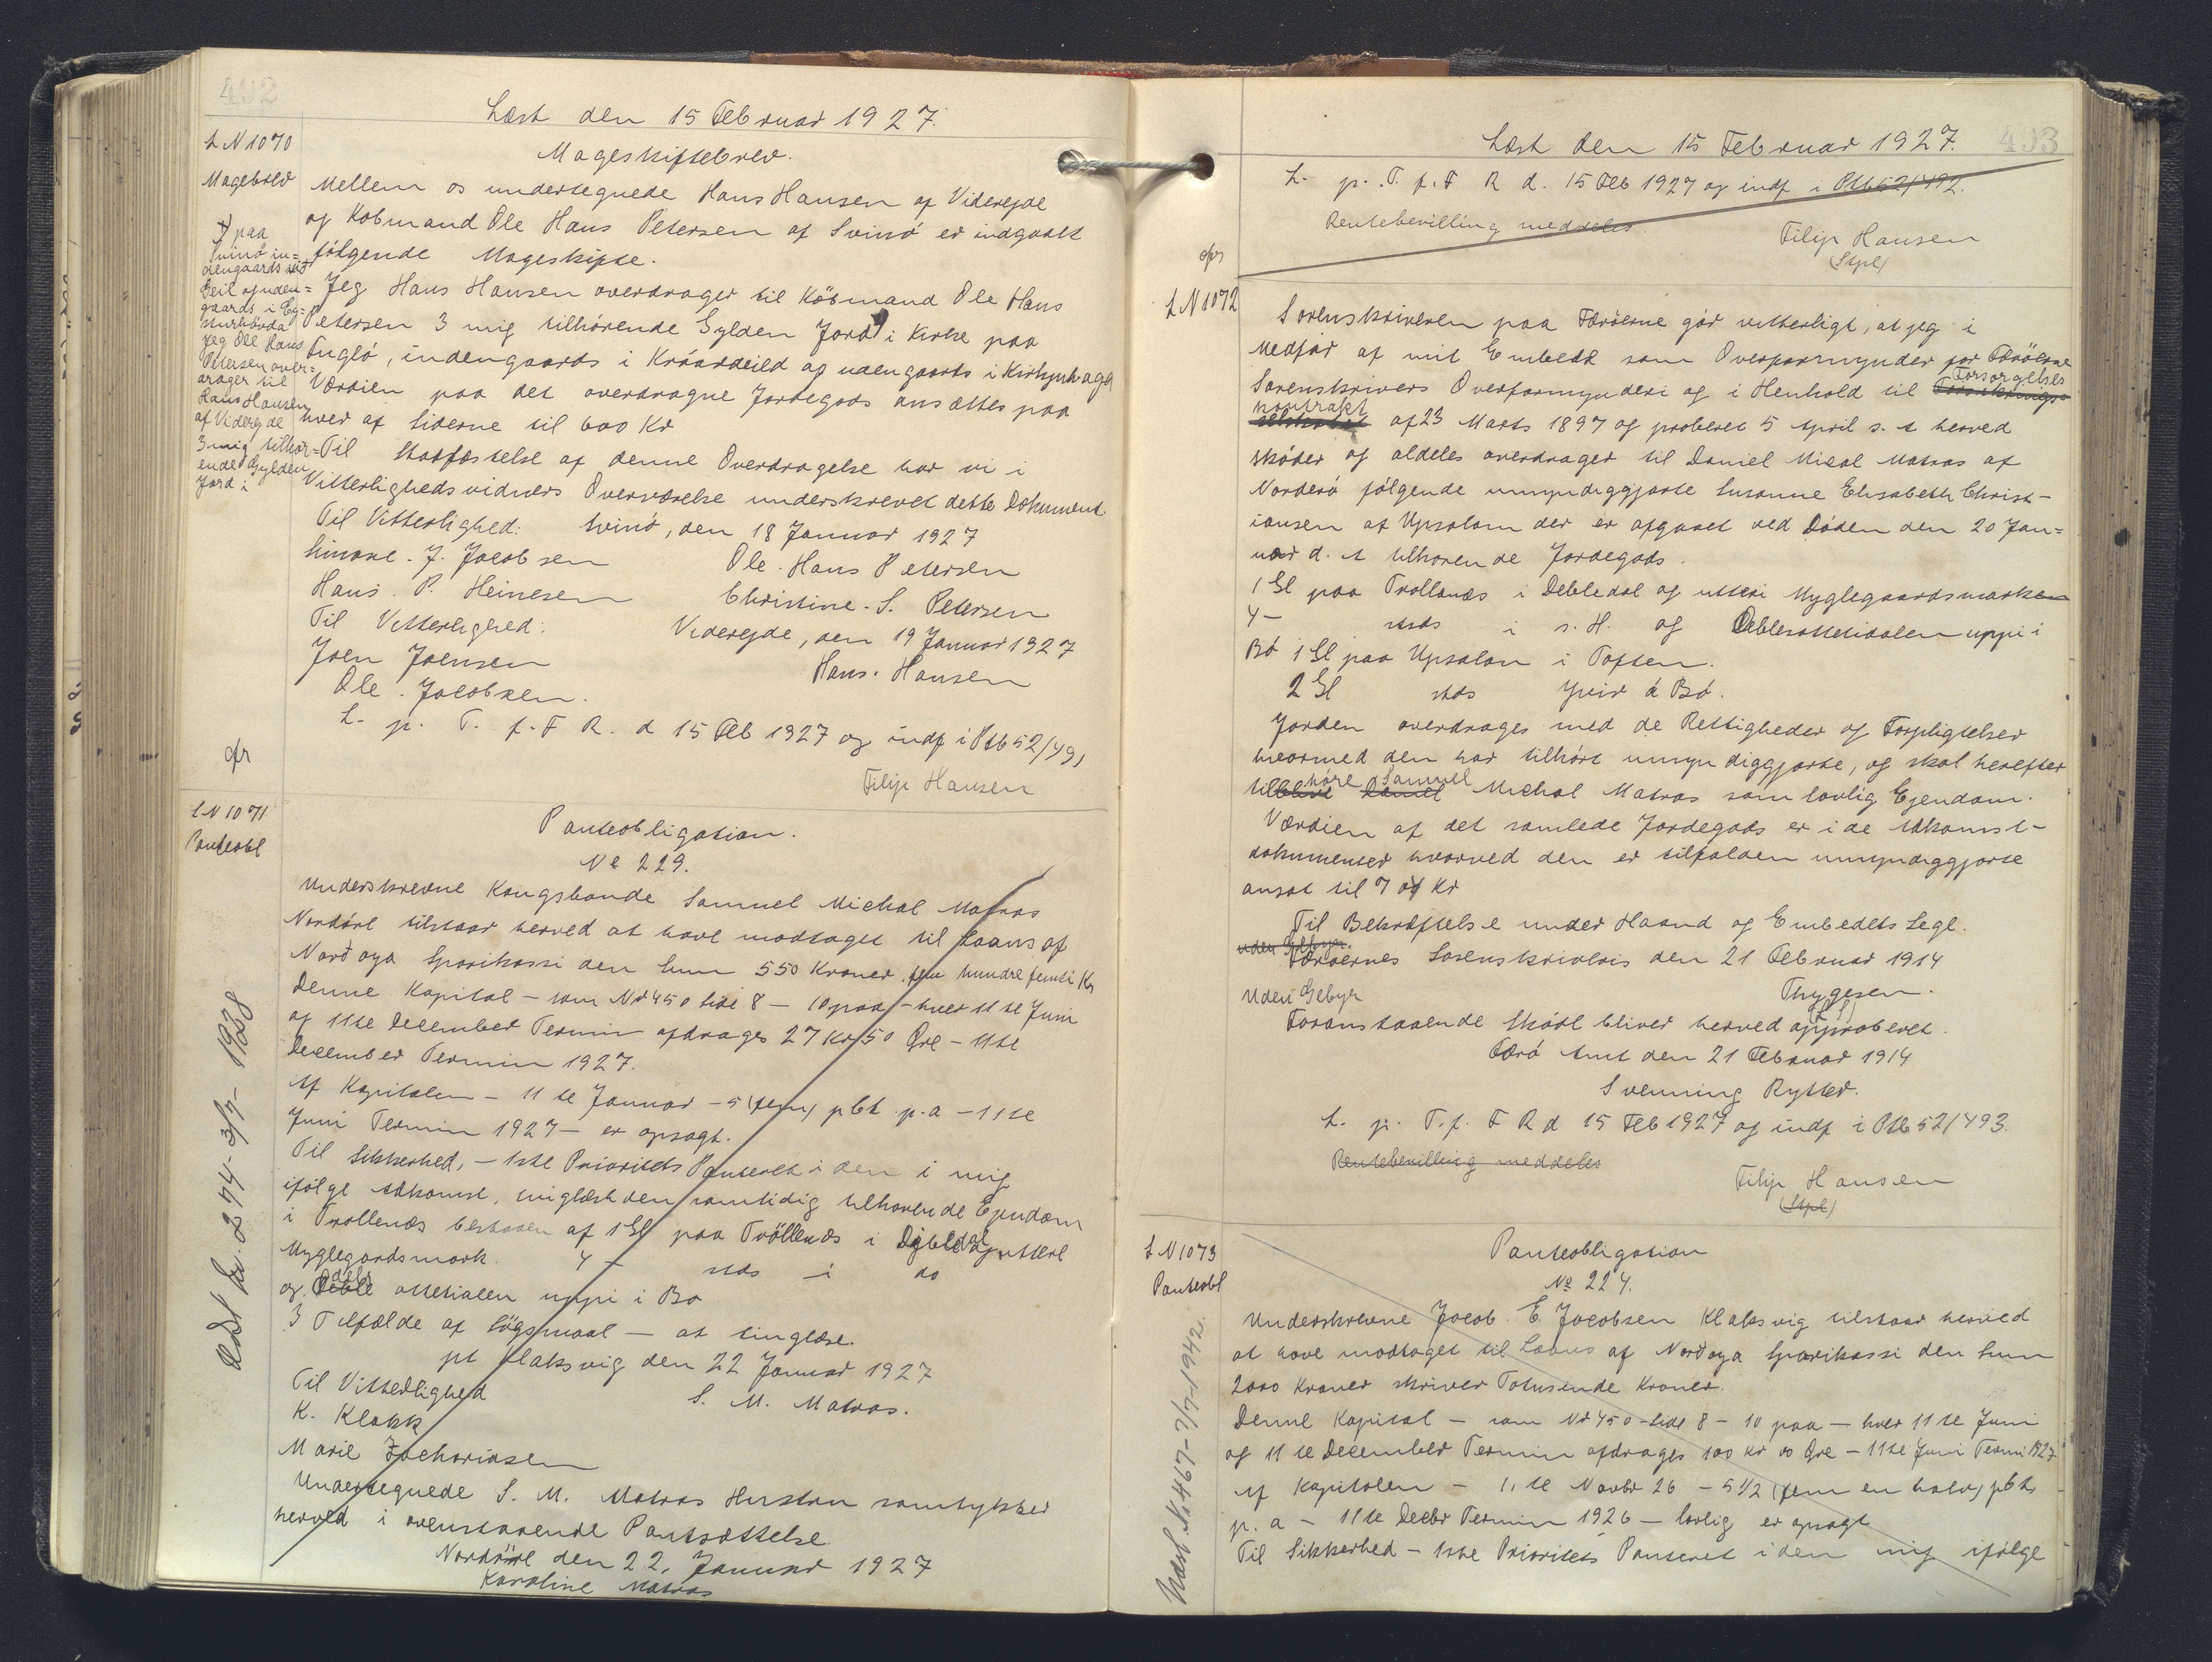 492
Læst den 15 Februar 1927.
L N 1070
Magebrev
Mageskiftebrev.
Mellem os undertegnede Hans Hansen af Viderejde
og Købmand Ole Hans Petersen af Svinö er indgaaet
følgende Mageskifte.
Jeg Hans Hansen overdrager til Köbmand Ole Hans
Petersen 3 mig tilhörende Gylden Jord i Kirke paa
Fuglö, indengaards i Króardeild og udengaards i Kirkjuhagg
Værdien paa det overdragne Jordegods ansættes paa
hver af Siderne til 600 Kr
Til Stadfæstelse af denne Overdragelse har vi i
Vitterlighedsvidners Overværelse underskrevet dette Dokument.
paa
Svinö in=
dengaards við
Geil og uden=
gaards i Ey=
sturhövda
Jeg Ole Hans
Petersen over=
drager til
Hans Hansen
af Viderejde
3 mig tilhør=
ende Gylden
Jord i
Til Vitterlighed: Svinö, den 18 Januar 1927
Simone. J. Jacobsen Ole. Hans Petersen
Hans. P. Heinesen Christine. S. Petersen
Til Vitterlighed: Viderejde, den 19 Januar 1927
Joen Joensen Hans. Hansen
Ole. Jacobsen.
L. p. T. f. F R. d 15 Feb 1927 og indf i Ptb 52/491
Filip Hansen
cfr
L N 1071
Panteobl
Panteobligation.
No 229.
Underskrevne Kongsbonde Samuel Michal Matras
Nordöre tilstaar herved at have modtaget til Laans af
Norðoya Sparikassi den Sum 550 Kroner fem hundre femti Kr
Denne Kapital - som Nr 450 Side 8 - 10 paa - hver 11 te Juni
og 11te December Termin afdrages 27 Kr 50 Øre - 11te
December Termin 1927.
Af Kapitalen - 11 te Januar - 5 (fem) pCt p. a - 11te
Juni Termin 1927 - er opsagt.
Til Sikkerhed, - 1ste Prioritets Panteret i den i mig
ifølge Adkomst, tinglæst den samtidig tilhørende Ejendom
i Trollenæs bestaaen af 1 Gl paa Tröllenæs i Debledal og utteri
Myglegaardsmark 4 - stds i do
og Deble ottetialen uppi i Bø
3 Tilfælde af Lögsmaal - at tinglæse.
pt Klaksvig den 22 Januar 1927
Til Vitterlighed S. M. Matras.
K. Klakk
Marie Zachariasen
Undertegnede S. M. Matras Hustru samtykker
herved i ovenstaaende Pantsættelse
Nordöre den 22, Januar 1927
Karoline Matras
Udsl Nr. 274 - 3/7 - 1928
493
Læst den 15 Februar 1927.
L. p. T. f. F R d. 15 Feb 1927 og indf i Ptb 52/492.
Rentebevilling meddeles.
Filip Hansen
(Stpl)
cfr
L N 1072
Sorenskriveren paa Færöerne gör vitterligt, at jeg i
Medfør af mit Embede som Overformynder for Færöerne
Sorenskrivers Overformynderi og i Henhold til Forsorgelses
kontrakt af 23 Marts 1897 og proberet 5 April s. A herved
skøder og aldeles overdrager til Daniel Micol Matras af
Norderö følgende umyndiggjorte Susanne Elisabeth Christ-
iansen af Upsalom der er afgaaet ved Døden den 20 Jan=
uar d. A tilhørende Jordegods.
1 Gl paa Trollenæs i Debledal og utteri Myglegaardsmarken
4 - stds i s. H. og Debleottetidalen uppi i
Bø 1 Gl paa Upsalom i Toften.
2 Gl stds Yvir á Bø.
Jorden overdrages med de Rettigheder og Forpligtelser
hvormed den har tilhört umyndiggjorte, og skal herefter
tilhøre Samuel Michal Matras som lovlig Ejendom.
Værdien af det samlede Jordegods er i de Adkomst-
dokumenter hvorved den er tilfalden umyndiggjorte
ansat til 701 Kr
Til Bekræftelse under Haand og Embedets Segl.
uden Gebyr.
Færöernes Sorenskriveris den 21 Februar 1914
Uden Gebyr Thygesen.
Foranstaaende Skøde bliver herved approberet.
Færö Amt den 21 Februar 1914
Svenning Rytter.
L. p. T. f. F R d 15 Feb 1927 og indf i Ptb 52/493.
Rentebevilling meddeles
Filip Hansen
(Stpl)
L N 1073
Panteobl
Panteobligation
No 224.
Underskrevne Jacob. E. Jacobsen Klaksvig tilstaar herved
at have modtaget til Laans af Norðoya Sparikassi den Sum
2000 Kroner skriver Totusende Kroner.
Denne Kapital - som Nr 450 - Side 8 - 10 paa - hver 11 te Juni
og 11 te December Termin afdrages 100 Kr 00 Øre - 11te Juni Termi 1927
Af Kapitalen - 1, te Novbr 26 - 5 1/2 (fem en halv) pCt
p. a - 11te Decbr Termin 1926 - lovlig er opsagt
Til Sikkerhed - 1ste Prioritets Panteret i den mig ifølge
Udsl. Nr. 467 - 7/7 - 1942.